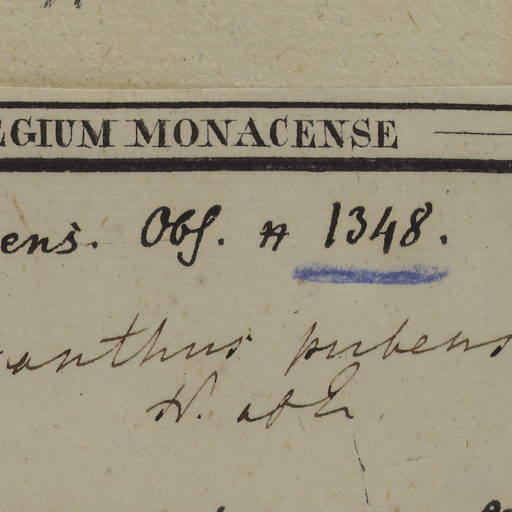 EGIUM MONACENSE
ens. Obs. n 1348.
anthus pubens